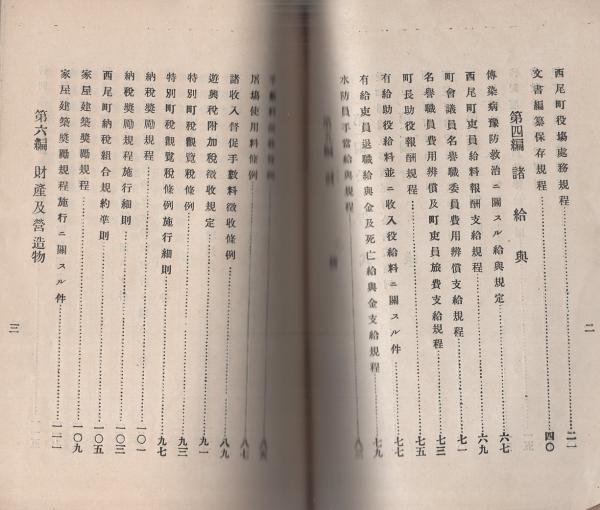 西尾町役塲處務規程……二一
文書編纂保存規程……四〇
第四編 諸給與
傳染病豫防救治ニ關スル給與規定……六七
西尾町吏員給料報酬支給規程……六九
町會議員名譽職委員費用辨償支給規程……七一
名譽職員費用辨償及町吏員旅費支給規程……七三
町長助役報酬規程……七五
有給助役給料並ニ收入役給料ニ關スル件……七七
有給吏員退職給與金及死亡給與金支給規程……七九
水防員手當給與規程
二
屠塲使用料條例……八七
諸收入督促手數料徵收條例……八九
遊興稅附加稅徵收規定……九一
特別町稅觀覽稅條例……九三
特別町稅觀覽稅條例施行細則……九七
納稅奬勵規程……一〇一
納稅奬勵規程施行細則……一〇三
西尾町納稅組合規約準則……一〇五
家屋建築奬勵規程……一〇九
家屋建築奬勵規程施行ニ關スル件……一一一
第六編 財產及營造物
三